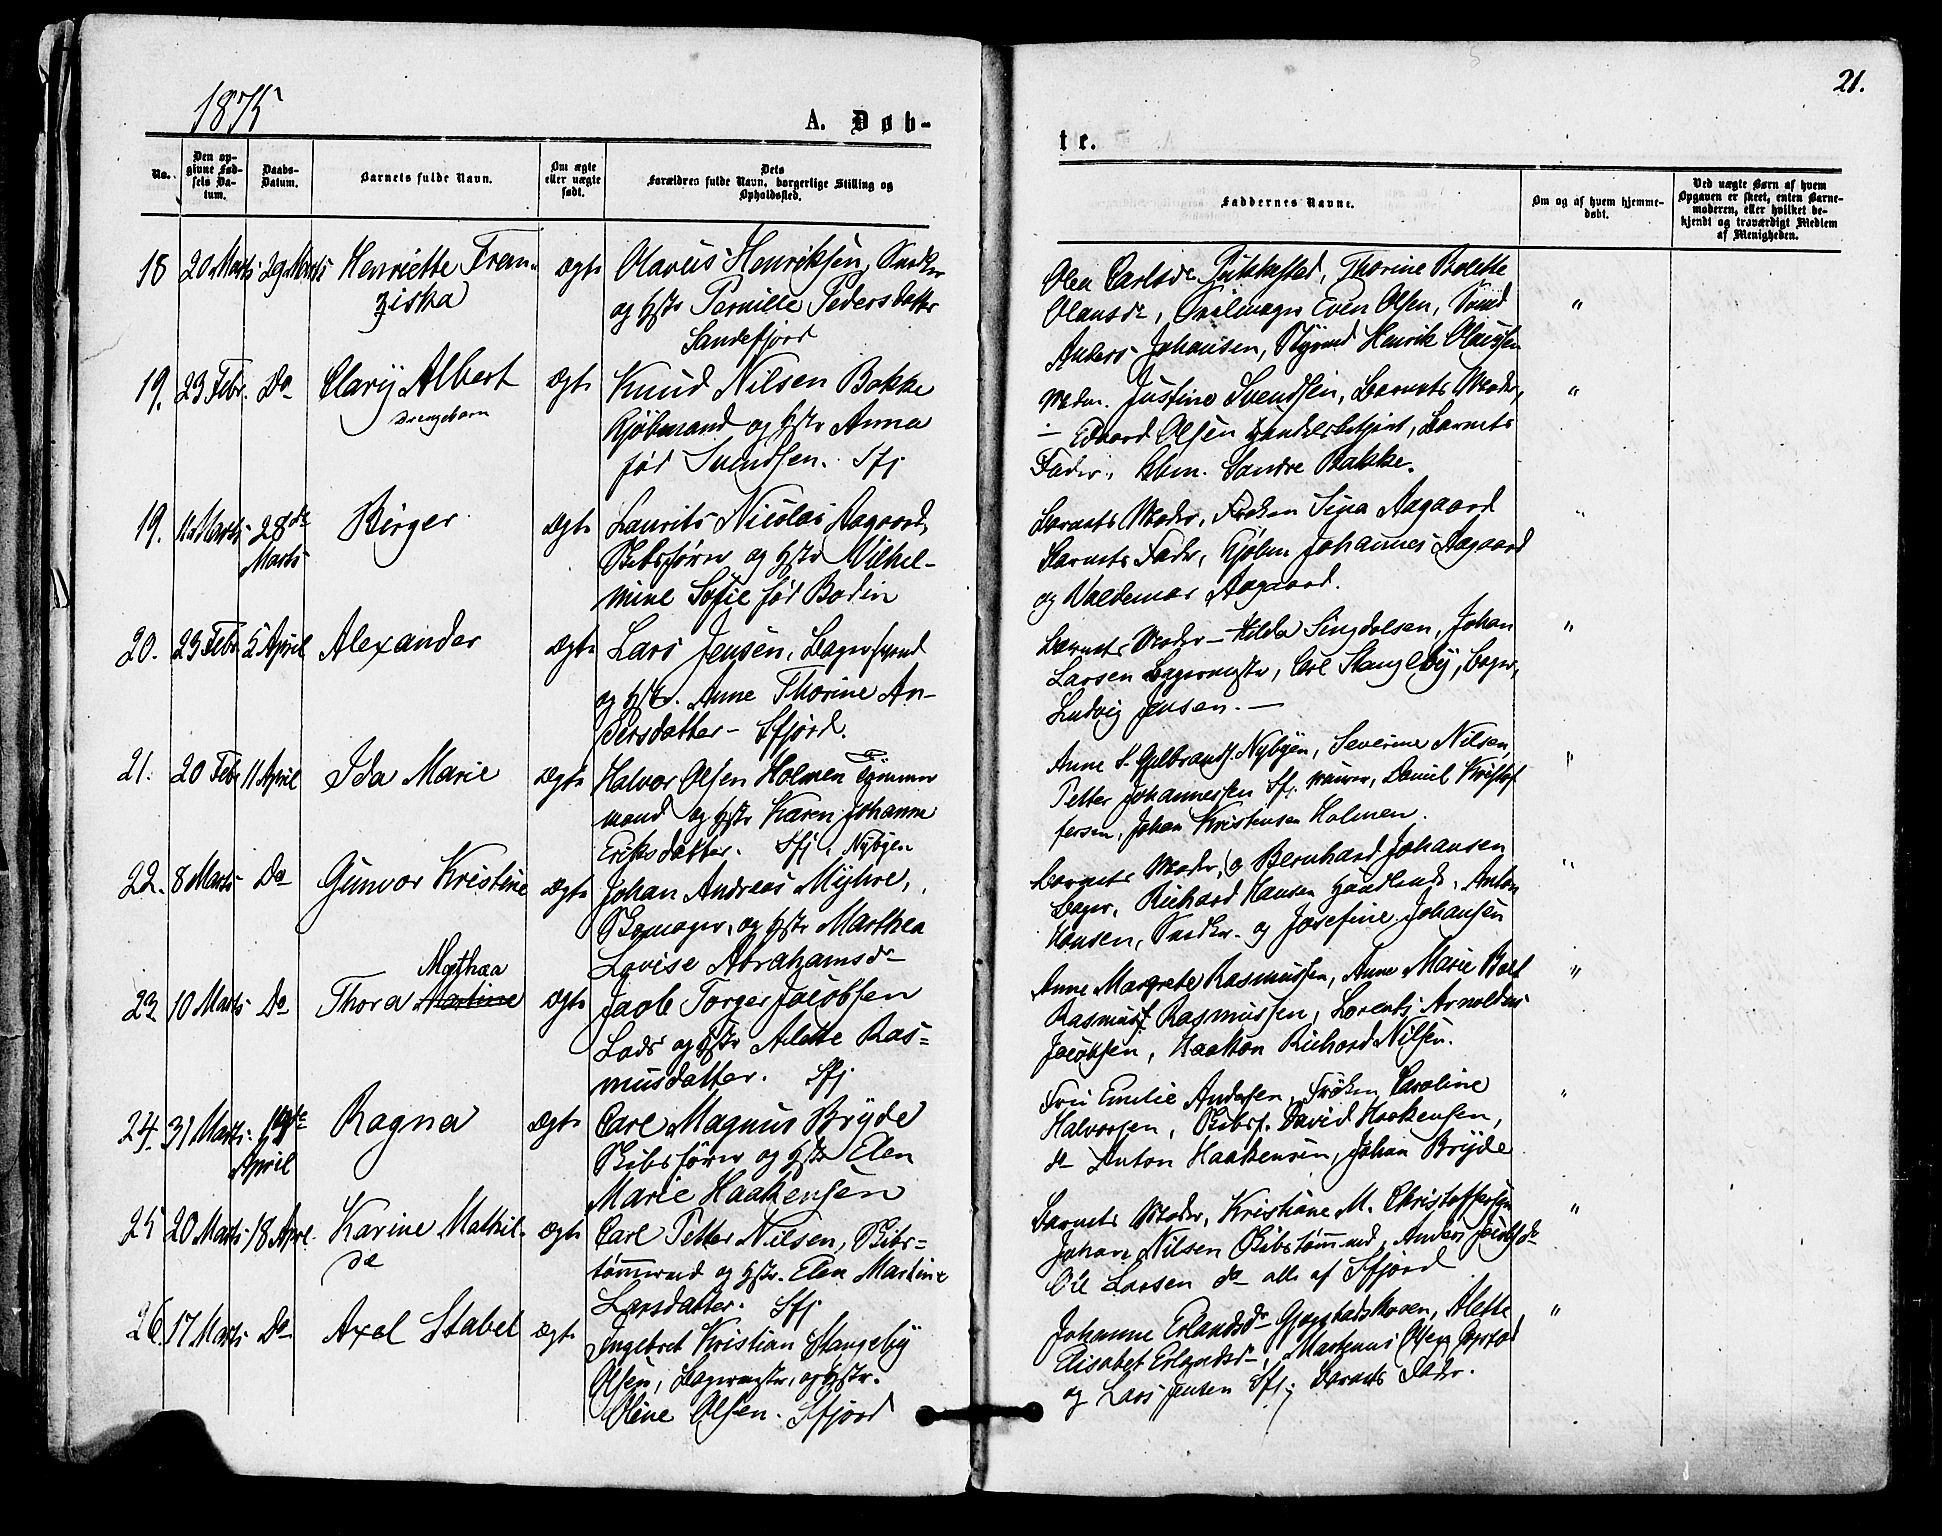 1875
A. Døb-
te.
21.
No.
Den op-
givne Fød-
sels Da-
tum.
Daabs-
Datum.
Barnets fulde Navn.
Om ægte
eller uægte
født.
Dets
Forældres fulde Navn, borgerlige Stilling og
Opholdssted.
Faddernes Navne.
Om og af hvem hjemme-
døbt.
Ved uægte Børn af hvem
Opgaven er skeet, enten Barne-
moderen, eller hvilket be-
kjendt og troværdigt Medlem
af Menigheden.
18 20 Marts 29 Marts Henriette Fran-
ziska
ægte
Olavus Henriksen, Snedker
og Hstr Pernille Pedersdatter
Sandefjord
Olea Carlsdr , Thorine Bolette
Olausdr, Seilmager Even Olsen, Smed
Anders Johansen, Styrmd Henrik Olaussen
"
19. 23 Febr. Do Clarij Albert
Drengebarn
ægte
Knud Nilsen Bakke
Kjøbmand og Hstr Anna
før Svendsen. Sfj
Mdm. Justine Svendsen, Barnets Moder,
— Edvard Olsen Handelsbetjent, Barnets
Fader, Kbm. Sondre Bakke.
"
19. 11 Marts 28de
Marts
Birger
ægte
Laurits Nicolai Aagaard,
Skibsfører og Hstr Vilhel-
mine Sofie før Bodin
Barnets Moder, Frøken Sina Aagaard
Barnets Fader, Kjøbm Johannes Aagaard
og Valdemar Aagaard.
"
20. 23 Febr 5 April Alexander
ægte
Lars Jensen, Bagersvend
og Hstr. Anne Thorine An-
dersdatter - Sfjord.
Barnets Moder - Hilda Singdolsen, Johan
Larsen Bagermester, Carl Stangeby, Bager,
Ludvig Jensen. —
"
21. 20 Febr 11 April Ida Marie
ægte
Halvor Olsen Holmen Tømmer
mand og Hstr Karen Johanne
Eriksdatter. Sfj. Nybyen
Anne S. Gulbrands. Nybyen, Severine Nilsen,
Petter Johannessen Sfj. murer, Daniel Kristof
fersen, Johan Kristensen Holmen.
"
22. 8 Marts Do Gunvor Kristine
ægte
Johan Andreas Myhre,
Skomager, og Hstr Marthea
Lovise Abrahamsdr
Barnets Moder, og Bernhard Johansen
Bager, Richard Hansen Handlende, Anton
Hansen, Snedker. og Josefine Johansen
"
Mathea
23 10 Marts Do Thora Martine
ægte
Jacob Torger Jacobsen
Lods og Hstr Alette Ras=
musdatter. Sfj
Anne Margrete Rasmussen, Anne Marie
Rasmus Rasmussen, Lorents Arnoldus
Jacobsen, Haakon Richard Nilsen.
"
24. 31 Marts
April
Ragna
ægte
Carl Magnus Bryde
Skibsfører og Hstr Elen
Marie Haakensen
Fru Emilie Andersen, Frøken Caroline
Halvorsen, Skibsf. David Haakensen,
do Anton Haakensen, Johan Bryde
"
25 20 Marts 18 April. Karine Mathil-
de
ægte
Carl Petter Nilsen, Skibs=
tømmermd og Hstr. Elen Martine
Larsdatter. Sfj
Barnets Moder, Kristiane M. Christoffersen
Johan Nilsen Skibstømmermd, Anders Jacobs do
Ole Larsen do alle af Sfjord
"
26. 17 Marts Do Axel Stabel
ægte
Ingebret Kristian Stangeby
Olsen, Bagermester, og Hstr.
Oline Olsen. Sfjord
Johanne Erlandsdr Gjogstadskoven, Alette
Elisabet Erlandsdr, Martinus Olsen
og Lars Jensen Sfj. Barnets Fader.
"